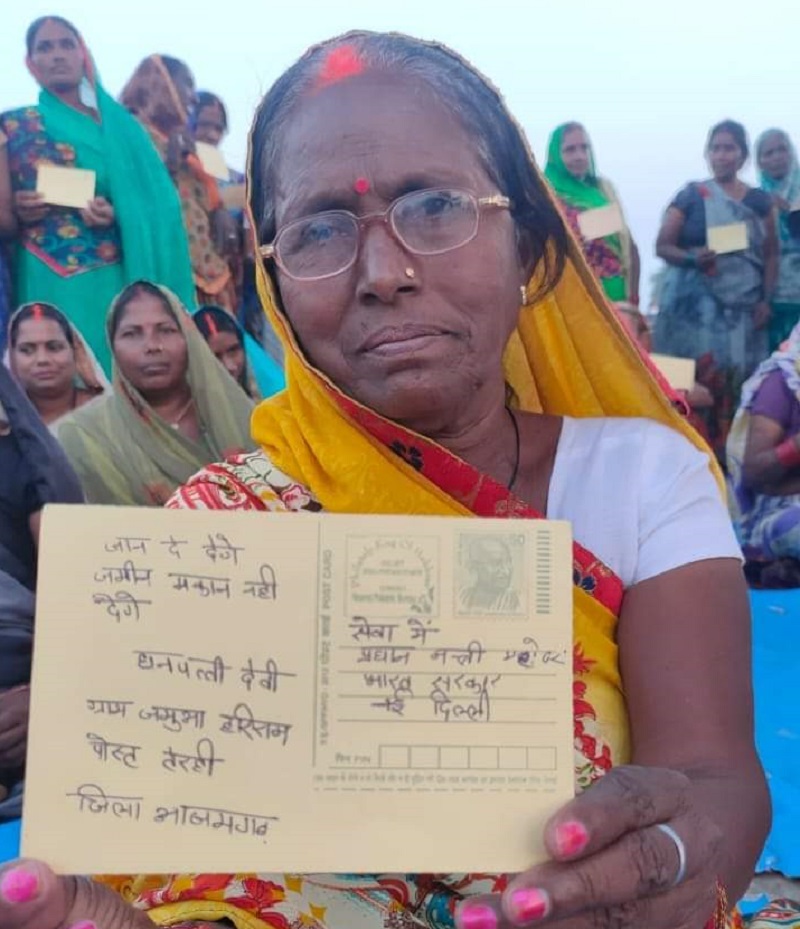 जान दे देगे
जमीन मकान नही
देगे
धनपत्ती देवी
ग्राम जमुआ हरिराम
पोस्ट
जिला आजमगढ़
POST CARD
सेवा में
प्रधान मन्त्री
भारत सरकार
नई दिल्ली
पिन PIN